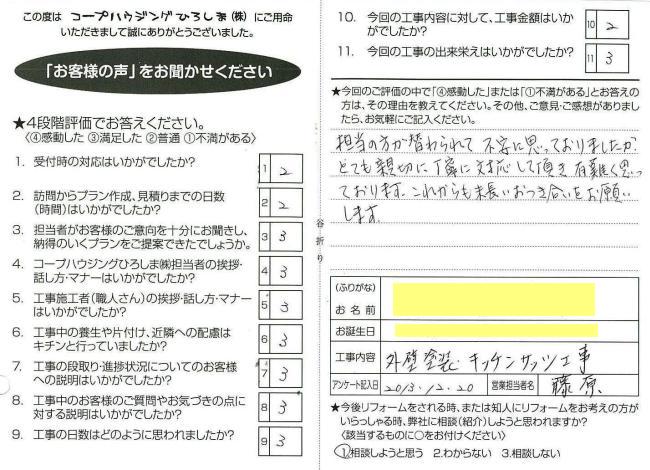 この度は コープハウジングひろしま(株) にご用命
いただきまして誠にありがとうございました。
「お客様の声」をお聞かせください
★4段階評価でお答えください。
〈④感動した ③満足した ②普通 ①不満がある〉
1. 受付時の対応はいかがでしたか?
1 2
2. 訪問からプラン作成、見積りまでの日数
(時間)はいかがでしたか?
2 2
3. 担当者がお客様のご意向を十分にお聞きし、
納得のいくプランをご提案できたでしょうか。
3 3
4. コープハウジングひろしま㈱担当者の挨拶・
話し方・マナーはいかがでしたか?
4 3
5. 工事施工者(職人さん)の挨拶・話し方・マナー
はいかがでしたか?
5 3
6. 工事中の養生や片付け、近隣への配慮は
キチンと行っていましたか?
6 3
7. 工事の段取り・進捗状況についてのお客様
への説明はいかがでしたか?
7 3
8. 工事中のお客様のご質問やお気づきの点に
対する説明はいかがでしたか?
8 3
9. 工事の日数はどのように思われましたか?
9 3
谷折り
10. 今回の工事内容に対して、工事金額はいか
がでしたか?
10 2
11. 今回の工事の出来栄えはいかがでしたか?
11 3
★今回のご評価の中で「④感動した」または「①不満がある」とお答え
の方は、その理由を教えてください。その他、ご意見・ご感想がありまし
たら、お気軽にご記入ください。
担当の方が替わられて 不安に思っておりましたが
とても親切に丁寧に対応して頂き 有難く思っ
ております。これからも末長いおつき合いをお願い
します。
(ふりがな)
お名前
お誕生日
工事内容
外壁塗装・キッチンサッシ工事
アンケート記入日
2013.12.20
営業担当者名
藤原
★今後リフォームをされる時、または知人にリフォームをお考えの方が
いらっしゃる時、弊社に相談(紹介)しようと思われますか?
〈該当するものに○をお付けください〉
①相談しようと思う 2.わからない 3.相談しない